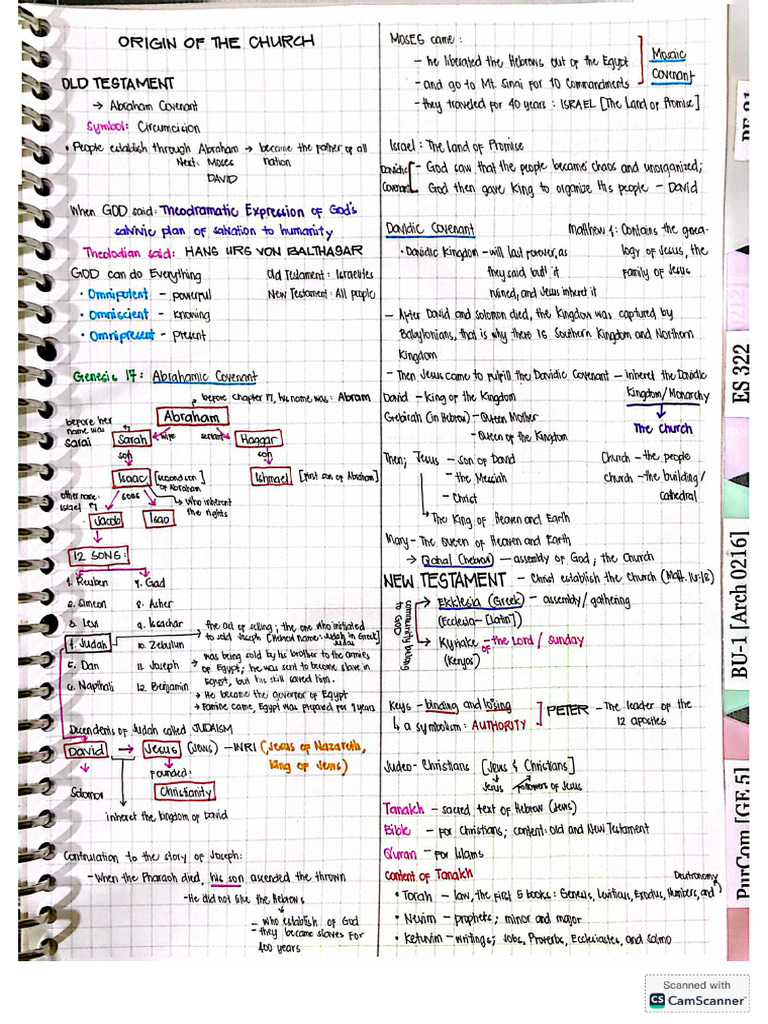 ORIGIN OF THE CHURCH
OLD TESTAMENT
→ Abraham Covenant
Symbol: Circumcision
• People establish through Abraham → become the father of all
Next: Moses nation
DAVID
When GOD said: Theodramatic Expression of God's
salvific plan of salvation to humanity
Theolodian said: HANS URS VON BALTHASAR
GOD can do Everything
Old Testament: Israelites
• Omnipotent - powerful
New Testament: All people
• Omniscient - knowing
• Omnipresent - present
Genesis 17: Abrahamic Covenant
→ before chapter 17, his name was: Abram
Abraham
before her
name was
Sarai
Sarah
wife
servant
Haggar
son
son
Isaac
[second son]
of Abraham
Ishmael
[first son of Abraham]
other name:
Israel
sons
→ who inherent
the rights
Jacob
Isao
12 SONS:
1. Reuben
7. Gad
2. Simeon
8. Asher
3. Levi
9. Issachar
4. Judah
10. Zebulun
5. Dan
11. Joseph
6. Napthali
12. Benjamin
the act of selling; the one who initiated
to sold Joseph [Hebrew name: Judah in Greek]
Judas
→ was being sold by his brother to the armies
of Egypt; he was sent to become slave in
Egypt, but God still saved him.
→ He become the governor of Egypt
→ Famine came, Egypt was prepared for 7 years
Decendents of Judah called JUDAISM
David → Jesus (Jews) - INRI (Jesus of Nazareth,
King of Jews)
Solomon
founded:
Christianity
inheret the kingdom of David
Continuation to the story of Joseph:
- When the Pharaoh died, his son ascended the thrown
- He did not like the Hebrews
- who establish of God
- they became slaves for
400 years
MOSES came:
- he liberated the Hebrews out of the Egypt
- and go to Mt. Sinai for 10 Commandments
- they traveled for 40 years: ISRAEL [The Land of Promise]
Mosaic
Covenant
Israel: The land of Promise
Davidic
Covenant
- God saw that the people became chaos and unorganized;
God then gave King to organize His people - David
Davidic Covenant
Matthew 1: Contains the genea-
logy of Jesus, the
family of Jesus
• Davidic Kingdom - will last forever, as
they said but it
ruined, and Jesus inheret it
- After David and Solomon died, the Kingdom was captured by
Babylonians, that is why there is Southern Kingdom and Northern
Kingdom
- Then Jesus came to fulfill the Davidic Covenant - inheret the Davidic
Kingdom/Monarchy
David - King of the Kingdom
The Church
Gebirah (in Hebrew) - Queen Mother
- Queen of the Kingdom
Then; Jesus - son of David
- the Messiah
- Christ
Church - the people
church - the building/
cathedral
→ The King of Heaven and Earth
Mary - The Queen of Heaven and Earth
→ Qahal (Hebrew) - assembly of God; the Church
NEW TESTAMENT - Christ establish the Church (Matt. 16:18)
community belong
to GOD
→ Ekklesia (Greek) - assembly/gathering
(Ecclesia - [Latin])
→ Kyriake - of the Lord / Sunday
(Kenyos)
Keys - binding and losing
↳ a symbolism: AUTHORITY
PETER - The leader of the
12 apostles
Judeo-Christians [Jews & Christians]
Jesus followers of Jesus
Tanakh - sacred text of Hebrew (Jews)
Bible - for Christians; content: Old and New Testament
Qur'an - for Islams
Content of Tanakh
Deutronomy
• Torah - law, the first 5 books: Genesis, Leviticus, Exodus, Numbers, and
• Nevim - prophets; minor and major
• Ketuvim - writings; Jobs, Proverbs, Ecclesiastes, and Salmo
ES 322
BU-1 [Arch 0216]
PurCom [GE 5]
Scanned with
CS CamScanner